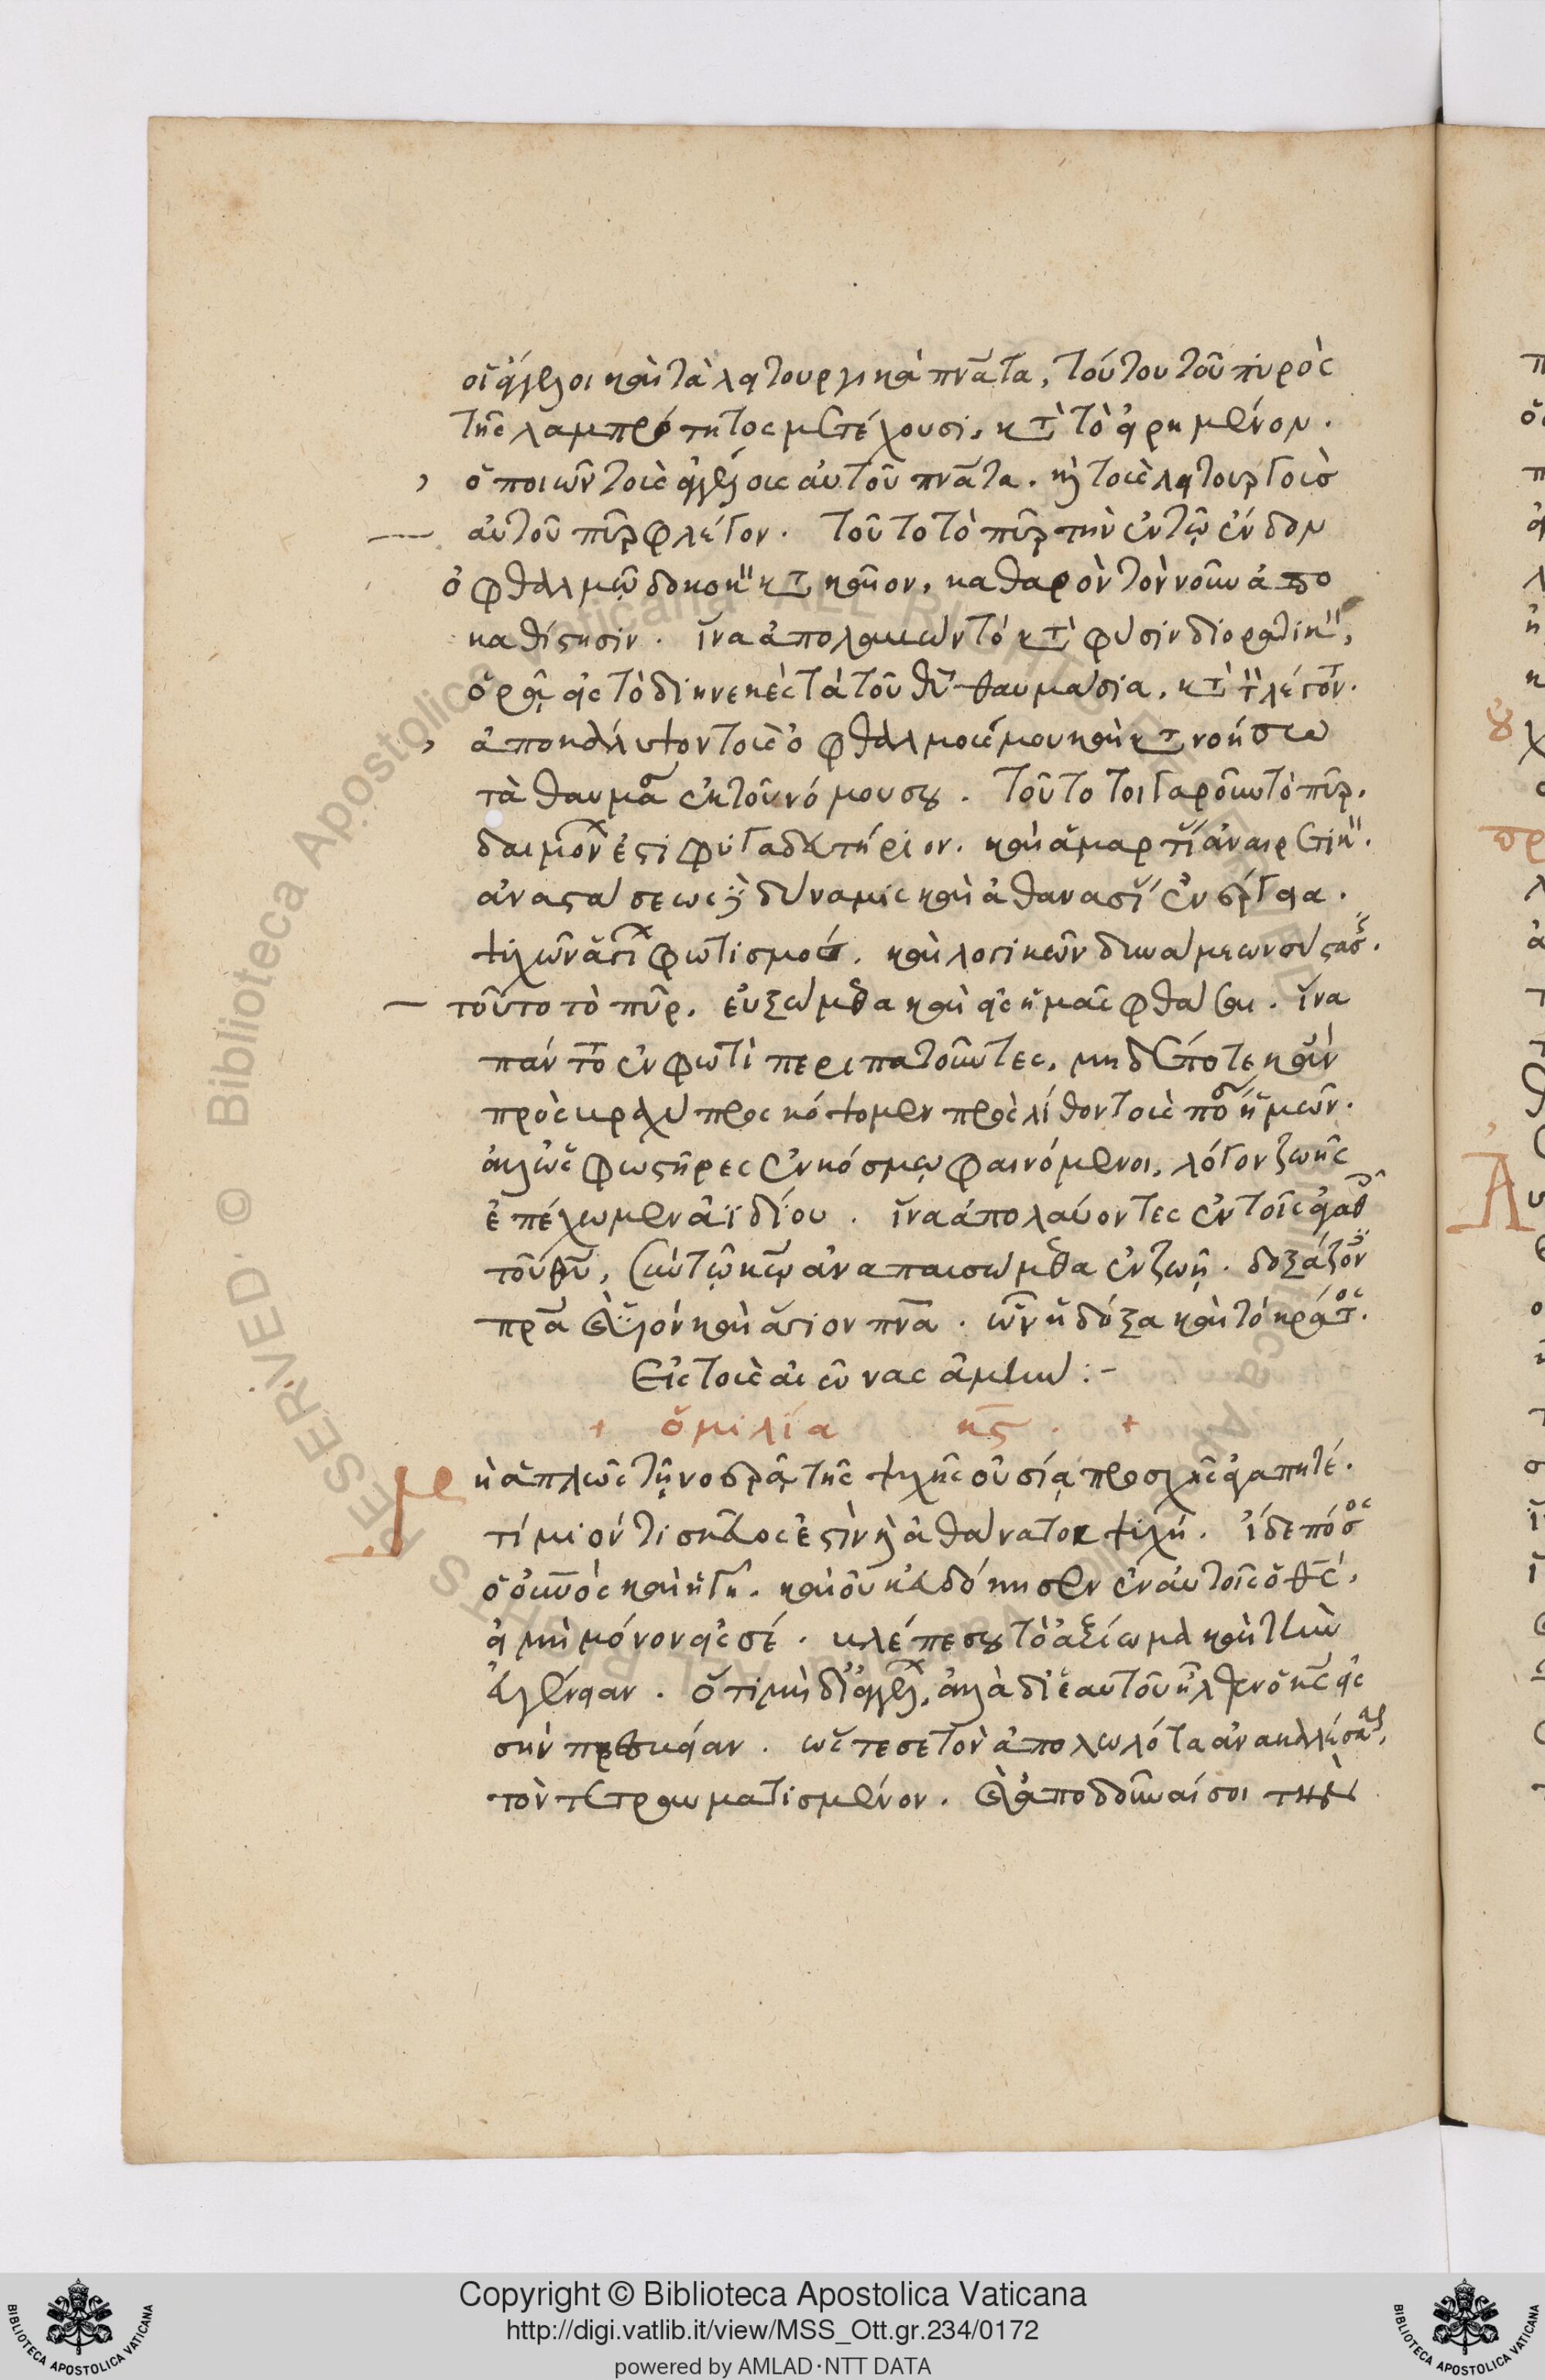 οἱ ἄγγελοι καὶ τὰ λειτουργικὰ πν̅ατα, τούτου τοῦ πυρὸς
τῆς λαμπρότητος μετέχουσι, κατὰ τὸ εἰρημένον.
ὁ ποιῶν τοὺς ἀγγέλους αὐτοῦ πν̅ατα. καὶ τοὺς λειτουργοὺσ
αὐτοῦ πῦρ φλέγον. τοῦτο τὸ πῦρ τὴν ἐν τῷ ἔνδον
ὀφθαλμῷ δοκὸν κατακαῖον, καθαρὸν τὸν νοῦν ἀπο
καθίστησιν. ἵνα ἀπολαβὼν τὸ κατὰ φύσιν διορατικὸν,
ὁρᾷ εἰς τὸ διηνεκὲς τὰ τοῦ θυ̅ θαυμάσια, κατὰ τὸν λέγοντα.
ἀποκάλυψον τοὺς ὀφθαλμούς μου καὶ κατανοήσω
τὰ θαυμάσια ἐκ τοῦ νόμου σου. τοῦτο τοιγαροῦν τὸ πῦρ.
δαιμόνων ἐστὶ φυγαδευτήριον. καὶ ἁμαρτίας ἀναιρετικὸν.
ἀναστάσεως δύναμις καὶ ἀθανασίας ἐνέργεια.
ψυχῶν ἁγίων φωτισμός. καὶ λογικῶν δυνάμεων σύστασις.
τοῦτο τὸ πῦρ. εὐξώμεθα καὶ εἰς ἡμᾶς φθάσαι. ἵνα
πάντοτε ἐν φωτὶ περιπατοῦντες, μηδέποτε κἂν
πρὸς βραχὺ προσκόψομεν πρὸς λίθον τοὺς πόδας ἡμῶν.
ἀλλ' ὡς φωστῆρες ἐν κόσμῳ φαινόμενοι, λόγον ζωῆς
ἐπέχωμεν ἀϊδίου. ἵνα ἀπολαύοντες ἐν τοῖς ἀγαθοῖς
τοῦ θυ̅, σὺν τῷ κω̅ ἀναπαυσώμεθα ἐν ζωῇ. δοξάζοντες
πρ̅α καὶ υἱὸν καὶ ἅγιον πν̅α. ὧν ἡ δόξα καὶ τὸ κράτος.
Εἰς τοὺς αἰῶνας ἀμήν :-
+ ὁμιλία κϛ. +
Μὴ ἁπλῶς τῇ νοερᾷ τῆς ψυχῆς οὐσίᾳ προσχῇς ἀγαπητέ.
τίμιον τι σκεῦος ἐστὶν ἡ ἀθάνατος ψυχή. ἴδε πόσος
ὁ οὐνὸς καὶ ἡ γῆ. καὶ οὐκ εὐδόκησεν ἐν αὐτοῖς ὁ θς̅,
εἰ μὴ μόνον εἰς σέ. βλέπε σου τὸ ἀξίωμα καὶ τὴν
εὐγένειαν. ὅτι μὴ δι' ἀγγέλων, ἀλλὰ δι' ἑαυτοῦ ἦλθεν ὁ κς̅ εἰς
σὴν πρεσβείαν. ὥστε σε τὸν ἀπολωλότα ἀνακαλέσασθαι,
τὸν τετραυματισμένον. καὶ ἀποδοῦναί σοι τὴν